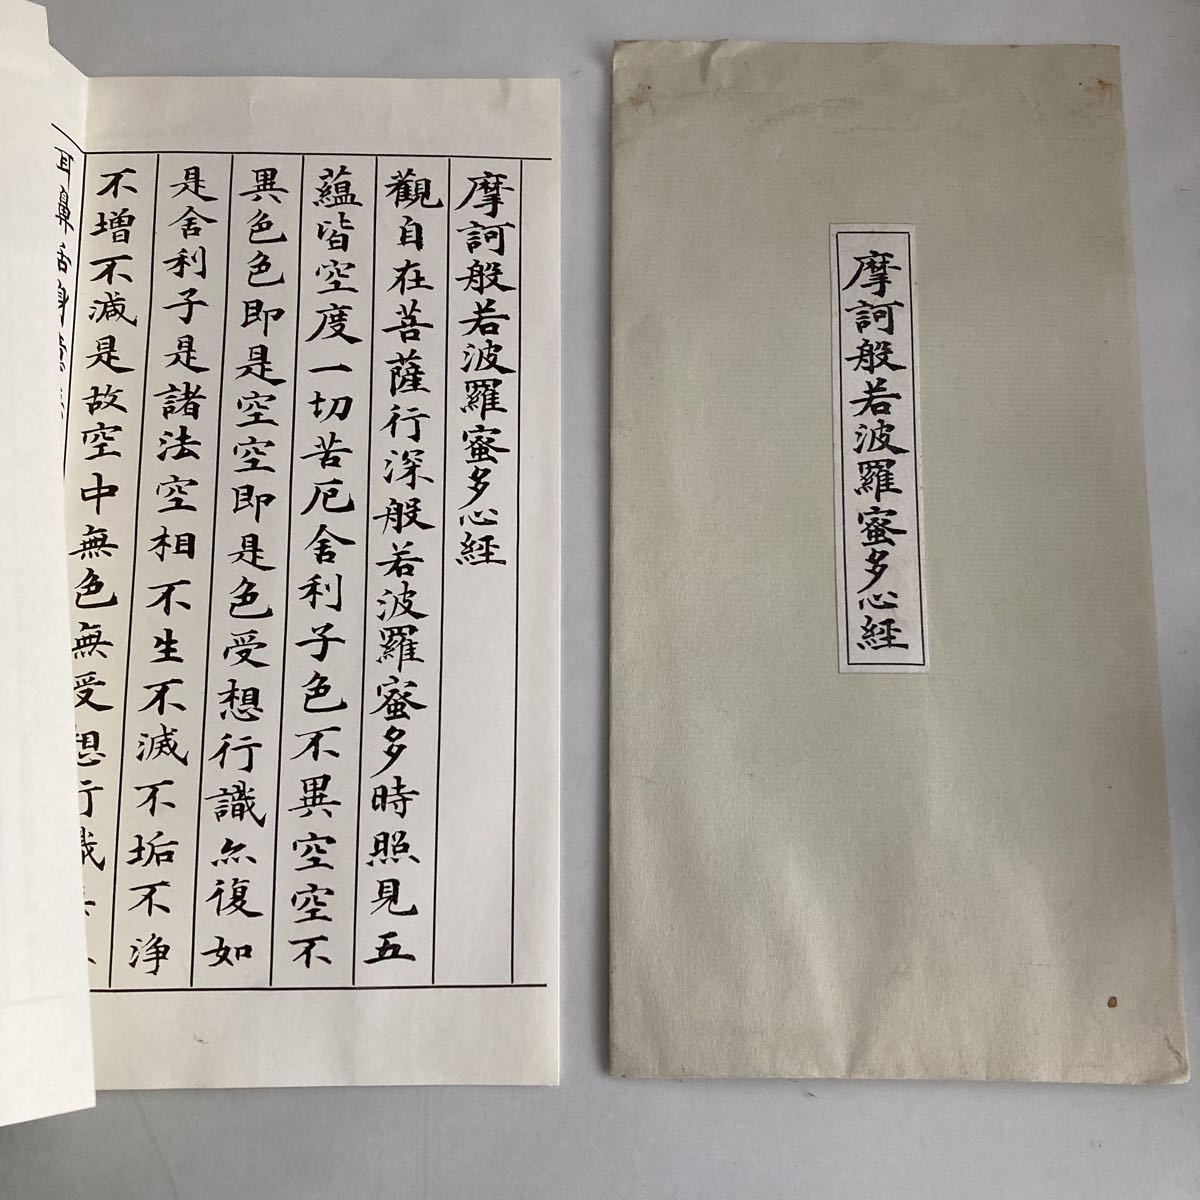 摩訶般若波羅蜜多心経
観自在菩薩行深般若波羅蜜多時照見五
蘊皆空度一切苦厄舍利子色不異空空不
異色色即是空空即是色受想行識亦復如
是舍利子是諸法空相不生不滅不垢不浄
不増不減是故空中無色無受想行識
耳鼻舌身意
摩訶般若波羅蜜多心経